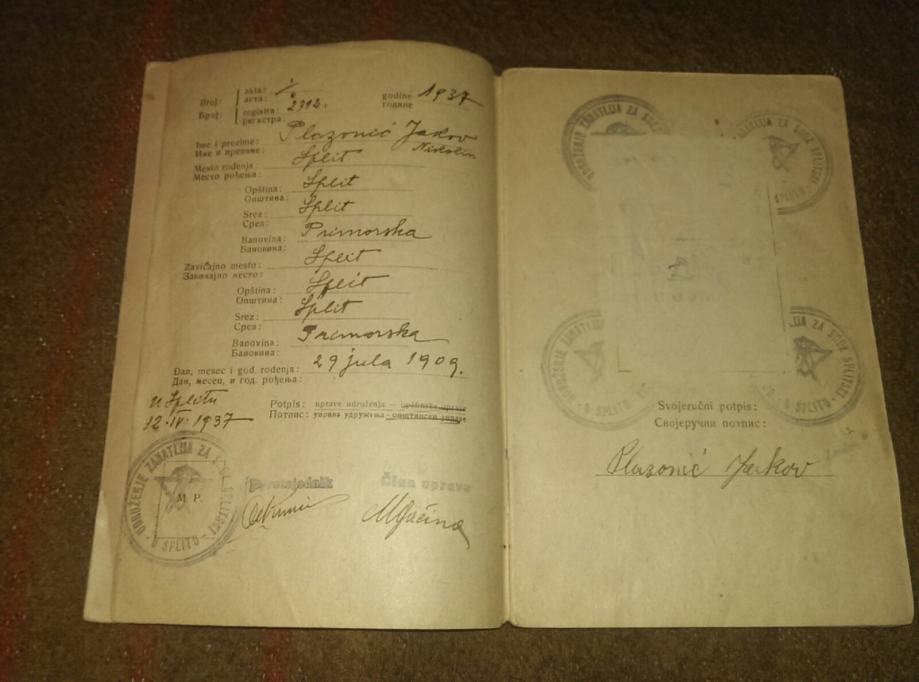 akta: 1/
акта:
Broj: registra 2312. godine 1937
Број: регистра: године
Ime i prezime: Plazonić Jakov
Име и презиме: Nikolin
Mesto rođenja: Split
Место рођења:
Opština: Split
Општина:
Srez: Split
Срез:
Banovina: Primorska
Бановина:
Zavičajno mesto: Split
Завичајно место:
Opština: Split
Општина:
Srez: Split
Срез:
Banovina: Primorska
Бановина:
Dan, mesec i god. rođenja: 29 jula 1909.
Дан, месец, и год. рођења:
u Splitu
12·IV·1937
Potpis: uprave udruženja — opštinske uprave
Потпис: управе удружења - општинске управе
UDRUŽENJE ZANATLIJA ZA SREZ SPLITSKI
- U SPLITU -
M. P.
Pretsjednik Član uprave
UDRUŽENJE ZANATLIJA ZA SREZ
ZA SREZ SPLITSKI
SPLITU
UDRUŽENJE ZANATLIJA
- U SPLITU
ZA SREZ SPLITSKI
Svojeručni potpis:
Својеручни потпис:
Plazonić Jakov